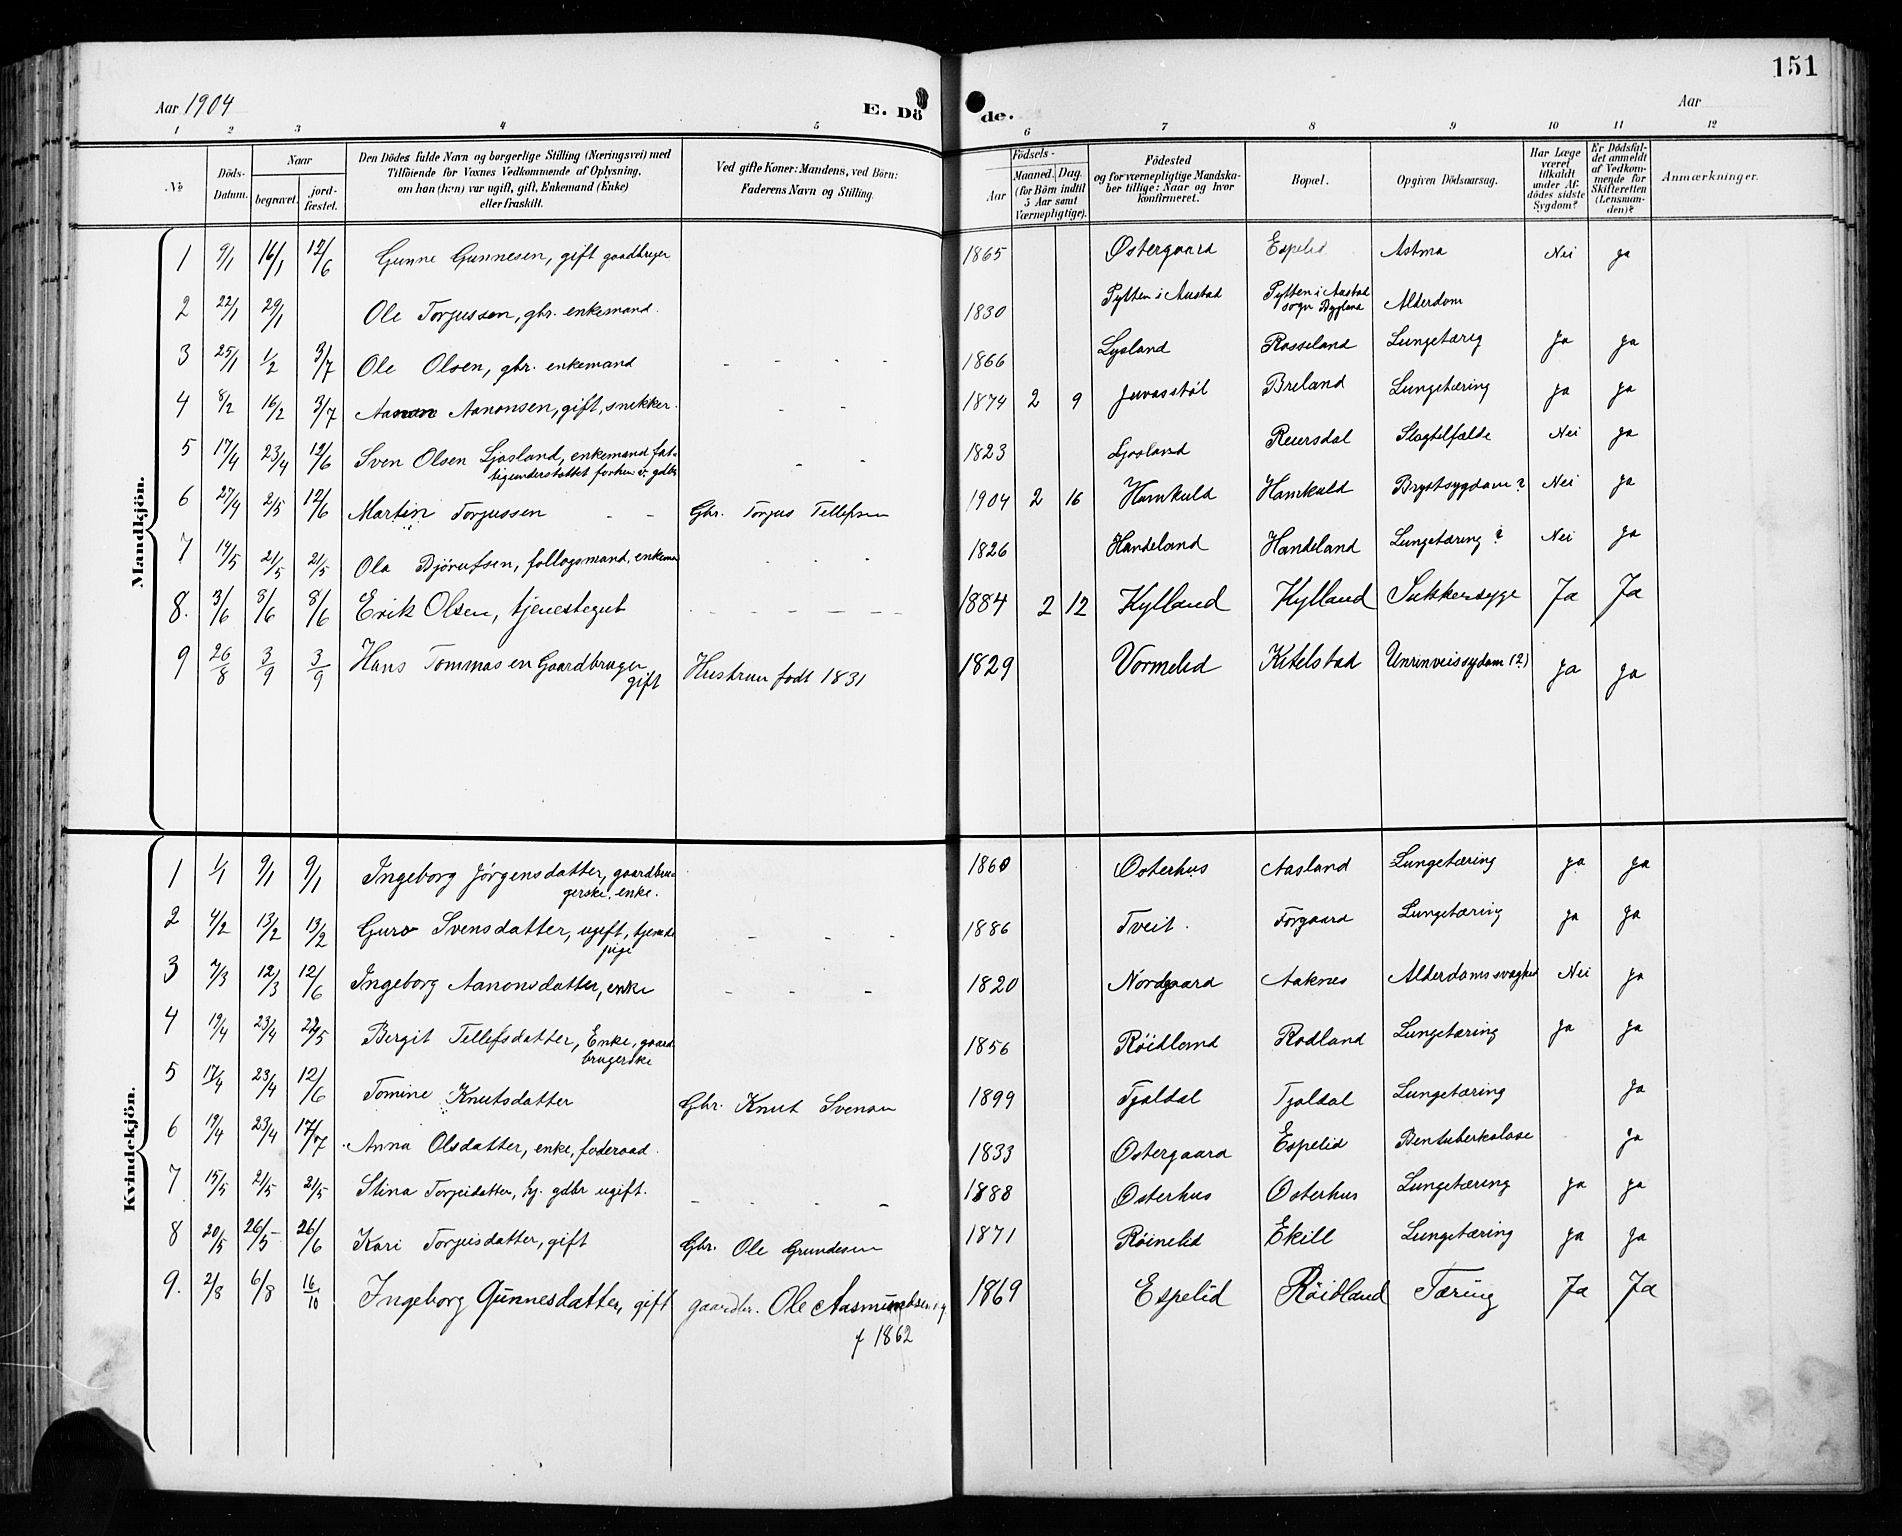 151
Aar 1904 E. Döde. Aar
1 2 3 4 5 6 7 8 9 10 11 12
No
Döds-Datum.
Naar
begravet.
jordfæstet.
Den Dödes fulde Navn og borgerlige Stilling (Næringsvei) med
Tilföiende for Voxnes Vedkommende af Oplysning,
om han (hun) var ugift, gift, Enkemand (Enke)
eller fraskilt.
Ved gifte Koner: Mandens, ved Börn:
Faderens Navn og Stilling.
Födsels-
Aar
Maaned. Dag.
(for Börn indtil
5 Aar samt
Værnepligtige).
Födested
og for værnepligtige Mandska-
ber tillige: Naar og hvor
konfirmeret.
Bopæl.
Opgiven Dödsaarsag.
Har Læge
været
tilkaldt
under Af-
dödes sidste
Sygdom?
Er Dödsfal-
det anmeldt
af Vedkom-
mende for
Skifteretten
(Lensman-
den)?
Anmærkninger.
Mandkjön.
1 9/1 16/1 12/6 Gunne Gunnesen, gift gaadbruger 1865 Østergaard Espelid Astma Nei ja
2 22/1 29/1 Ole Torjussen, gbr. enkemand. 1830 Pytten i Austad Pytten i Austad Alderdom
sogn Bygland
3 25/1 1/2 3/7 Ole Olsen, gbr. enkemand - - - - 1866 Lysland Rosseland Lungetærig Ja ja
4 8/2 16/2 3/7 Aanon Aanonsen, gift, snekker. - - 1874 2 9 Juvasstöl Breland Lungetæring ja ja
5 17/4 23/4 12/6 Sven Olsen Ljosland, enkemand fat- - - 1823 Ljosland Reiersdal Slagtilfælde Nei ja
tigunderstøttet forhen v. gdbr
6 27/4 2/5 12/6 Martin Torjussen - - Gbr. Torjus Tellefsen 1904 2 16 Homkuld Homkuld Brystsygdom? Nei ja
7 14/5 21/5 21/5 Ola Bjørufsen, follogsmand, enkema - - - 1826 Handeland Handeland Lungetæring? Nei ja
8. 3/6 8/6 8/6 Erik Olsen, tjenestegut - - - - - - 1884 2 12 Kylland Kylland Sukkersyge Ja Ja
9 26/8 3/9 3/9 Hans Tommasen Gaardbruger Hustruen født 1831 1829 Vormelid Kitelstad Unrinveissydom (?) ja ja
gift
Kvindekjön.
1 1/1 9/1 9/1 Ingeborg Jörgensdatter, gaardbru- 1860 Osterhus Aasland Lungetæring ja ja
gerske. enke.
2 4/2 13/2 13/2 Guro Svensdatter, ugift, tjeneste - - - 1886 Tveit. Torgaard Lungetæring ja ja
pige
3 7/3 12/3 12/6 Ingeborg Aanonsdatter, enke - - - 1820 Nordgaard Aaknes Alderdomssvaghed Nei ja
4 19/4 23/4 22/5 Bergit Tellefsdatter, Enke, gaard 1856 Röidland Rodland Lungetæring ja ja
brugerske
5 17/4 23/4 12/6 Tomine Knutsdatter Gbr. Knut Svensen 1899 Tjaldal Tjaldal Lungetæring ja
6 19/4 23/4 17/7 Anna Olsdatter, enke, foderaad. 1833 Ostergaard Espelid Bentuberkolose ja
7 15/5 21/5 21/5 Stina Torjeidatter, hj. gdbr ugift. - - - - 1888 Osterhus Osterhus Lungetæring ja ja
8 20/5 26/5 26/6 Kari Torjeisdatter, gift Gbr. Ole Grundesen 1871 Röinelid Ekill Lungetæring ja ja
9. 2/8 6/8 16/10 Ingeborg Gunnesdatter, gift gaardbr. Ole Aasmundsen 1869 Espelid Röidland Tæring Ja Ja
f 1862